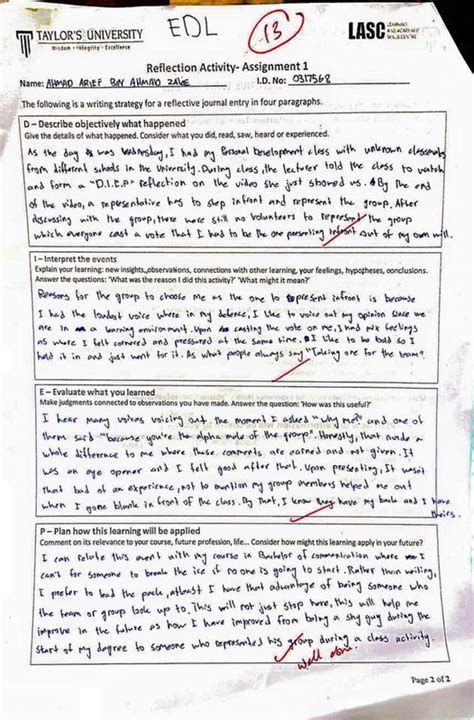 EDL
13
TAYLOR'S UNIVERSITY
Wisdom • Integrity • Excellence
LASC
LEARNING AND ACADEMIC SKILLS CENTRE
Reflection Activity- Assignment 1
Name: AHMAD ARIEF BIN AHMAD ZAKE I.D. No: 0317568
The following is a writing strategy for a reflective journal entry in four paragraphs.
D – Describe objectively what happened
Give the details of what happened. Consider what you did, read, saw, heard or experienced.
As the day was Wednesday, I had my Personal Development class with unknown classmates
from different schools in the University. During class, the lecturer told the class to watch
and form a "D.I.E.P" Reflection on the video she just showed us. By the end
of the video, a representative has to step infront and represent the group. After
discussing with the group, there were still no volunteers to represent the group
which everyone cast a vote that I had to be the one presenting infront out of my own will.
I – Interpret the events
Explain your learning: new insights, observations, connections with other learning, your feelings, hypotheses, conclusions.
Answer the questions: 'What was the reason I did this activity?' 'What might it mean?'
Reasons for the group to choose me as the one to present infront is because
I had the loudest voice where in my defence, I like to voice out my opinion since we
are in a learning environment. Upon casting the vote on me, I had mix feelings
as where I felt cornered and pressured at the same time. I like to be bold so I
held it in and just went for it. As what people always say "Taking one for the team".
E – Evaluate what you learned
Make judgments connected to observations you have made. Answer the question: 'How was this useful?'
I hear many voices voicing out, the moment I asked "why me?" and one of
them said "because you're the alpha male of the group". Honestly, that made a
whole difference to me where these comments are earned and not given. It
was an eye opener and I felt good after that. Upon presenting, It wasnt
that bad of an experience, not to mention my group members helped me out
when I gone blank in front of the class. By that, I know they have my back and I have
theirs.
P – Plan how this learning will be applied
Comment on its relevance to your course, future profession, life... Consider how might this learning apply in your future?
I can relate this event with my course in Bachelor of communication where I
can't for someone to break the ice if no one is going to start. Rather than writing,
I prefer to lead the pack, atleast I have that advantage of being someone who
the team or group look up to. This will not just stop here, this will help me
improve in the future as how I have improved from being a shy guy during the
start of my degree to someone who represented his group during a class activity.
Well done.
Page 2 of 2